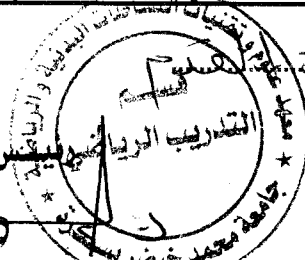 معهد علوم وتقنيات النشاطات البدنية والرياضية
قسم
التدريب الرياضي
جامعة محمد خيضر بسكرة